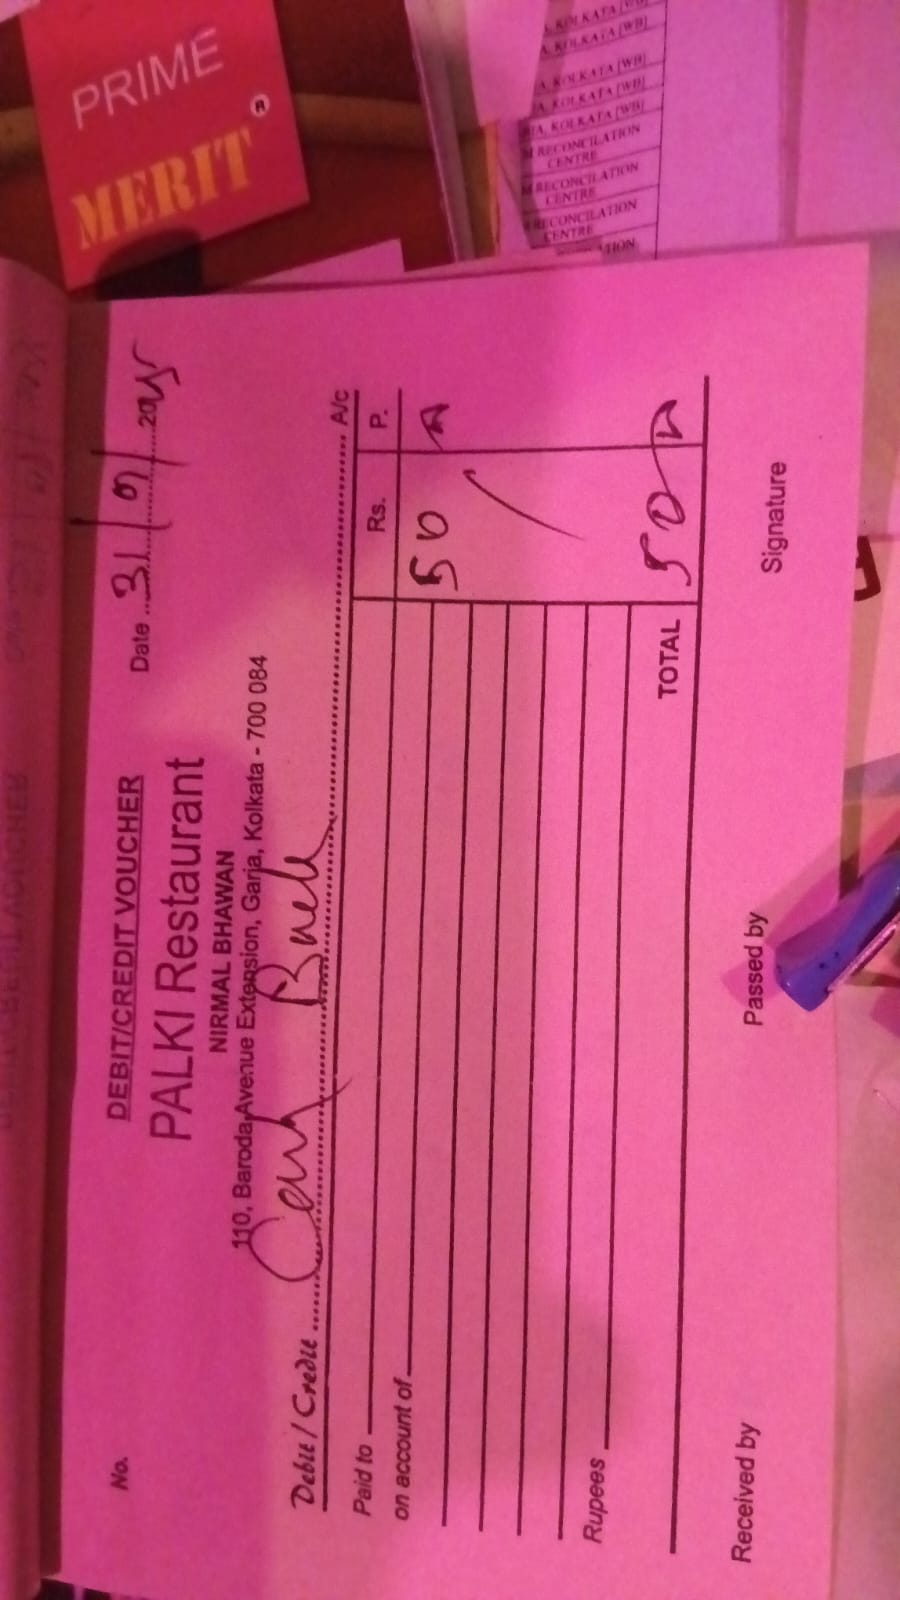 PRIME
MERIT®
A, KOLKATA [WB]
A, KOLKATA [WB]
A, KOLKATA [WB]
IA, KOLKATA [WB]
RECONCILATION
CENTRE
RECONCILATION
CENTRE
RECONCILATION
CENTRE
No.
DEBIT/CREDIT VOUCHER
Date 31/01/2025
PALKI Restaurant
NIRMAL BHAWAN
110, Baroda Avenue Extension, Garia, Kolkata - 700 084
Debit / Credit A/c
Paid to Rs. P.
on account of 50
Rupees
TOTAL 50
Received by Passed by Signature